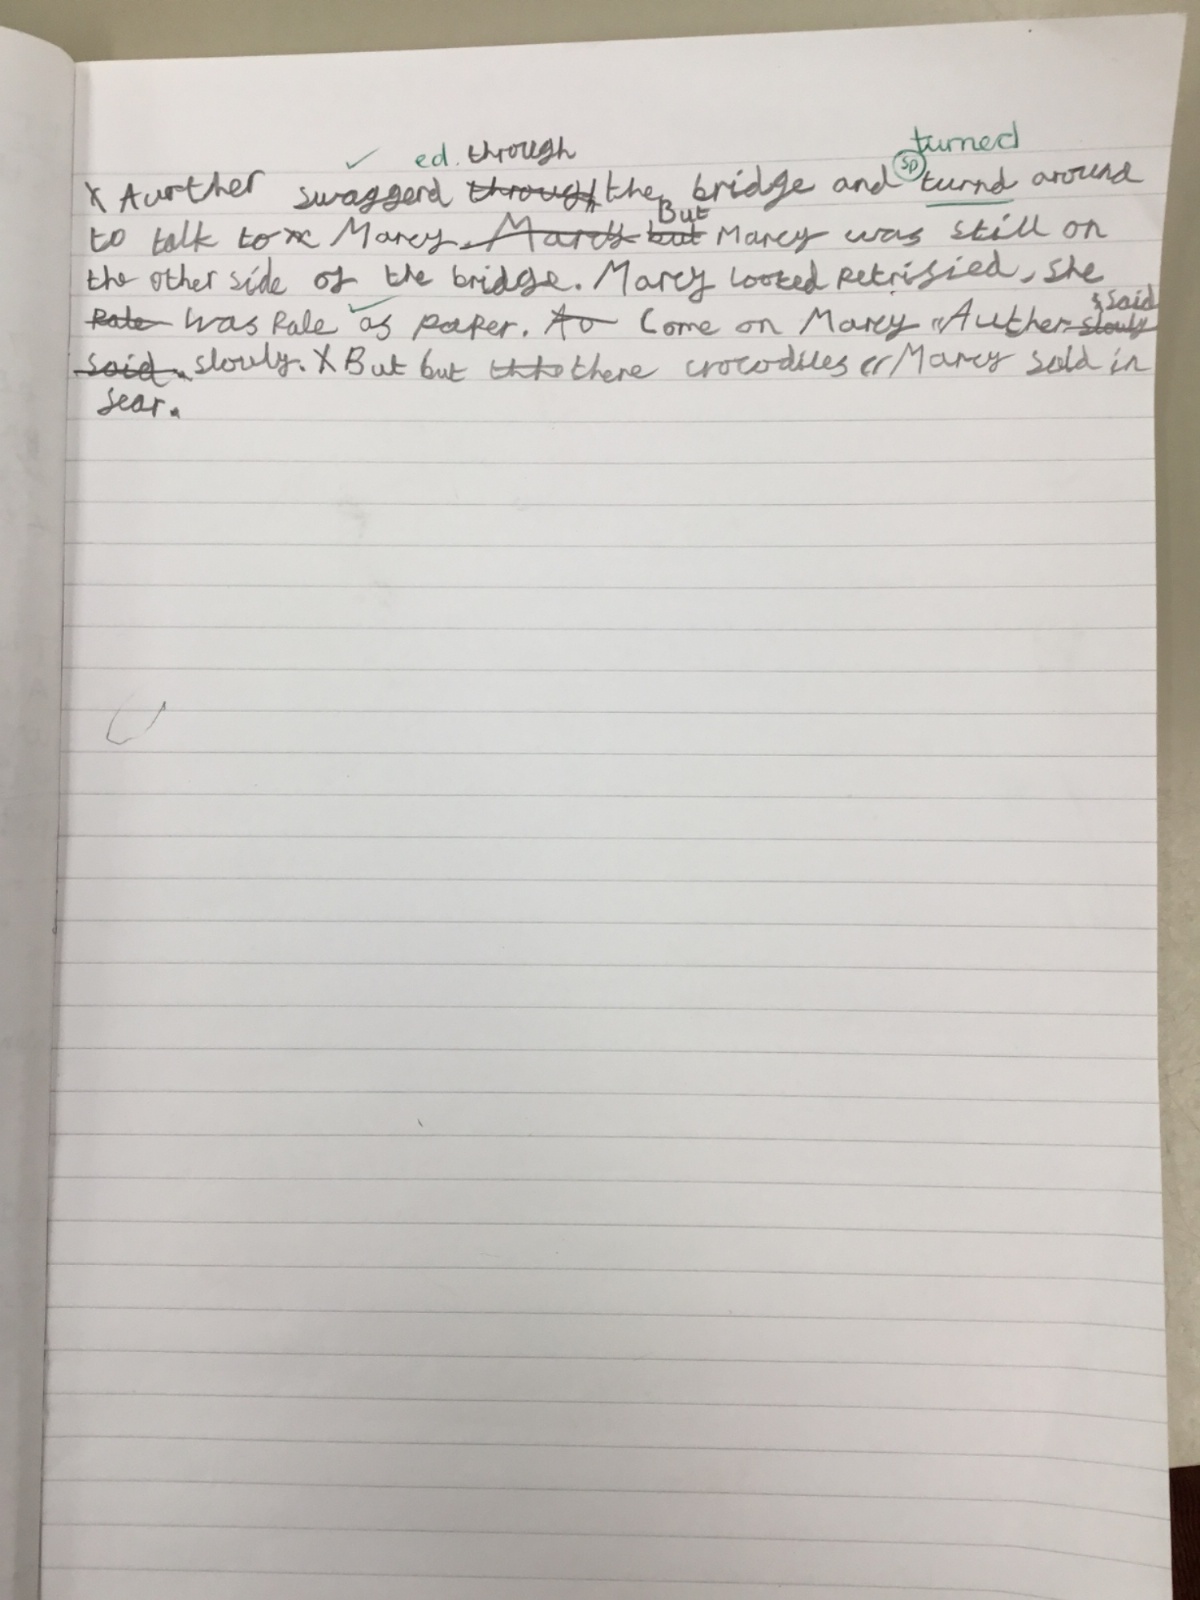 ✓ ed. through turned
x Aurther swaggerd through the bridge and sp turnd around
But
to talk to Marcy. Marcy but Marcy was still on
the other side of the bridge. Marcy looked Petrified, she
said
Pale was Pale as paper. Ao Come on Marcy "Auther slowly
said. slowly. x But but there crocodiles " Marcy said in
fear.